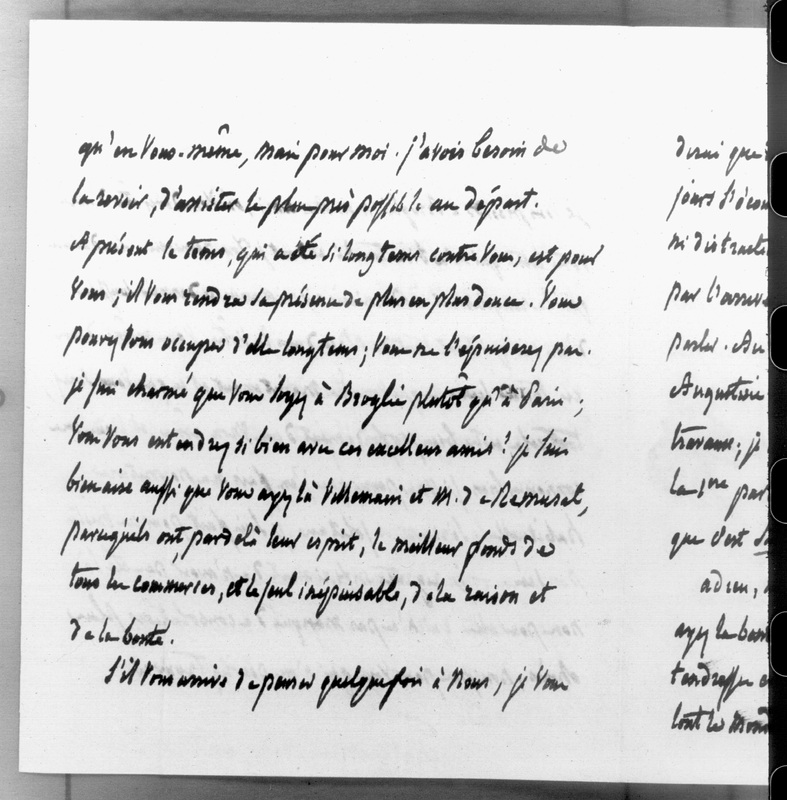 qu'en vous-même, mais pour moi. j'avois besoin de
la revoir, d'assister le plus près possible au départ.
A présent le tems, qui a été si longtems contre vous, est pour
vous ; il vous rendra sa présence de plus en plus douce. Vous
pouvez vous occuper d'elle longtems ; vous ne l'épuiserez pas.
je suis charmé que vous logiez à Broglie plutôt qu'à Paris ;
vous vous entendrez si bien avec ces excellens amis ! je suis
bien aise aussi que vous ayez là Villemain et M. de Remusat,
parcequ'ils ont, par delà leur esprit, le meilleur fonds de
tous les commerces, et le seul inépuisable, de la raison et
de la bonté.
S'il vous arrive de penser quelquefois à nous, je vous
dirai que
jours s'écou
ni distracti
par l'arrivé
parler. Au
Augustin
travaux ; je
la 1re par
que c'est
adieu,
ayez la bon
tendresse
tout le mond